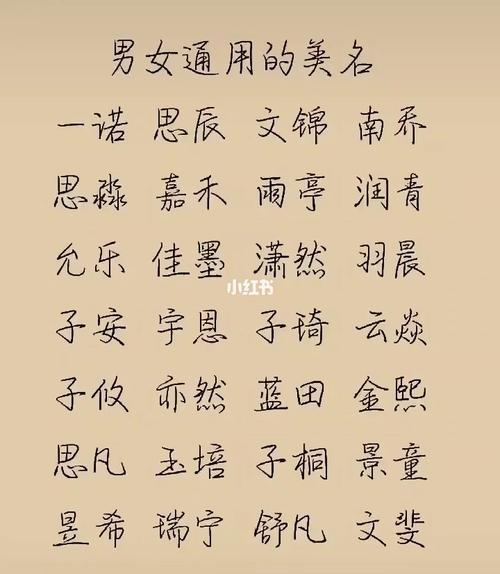 男女通用的美名
一诺 思辰 文锦 南乔
思淼 嘉禾 雨亭 润青
允乐 佳墨 潇然 羽晨
小红书
子安 宇恩 子琦 云焱
子攸 亦然 蓝田 金熙
思凡 玉培 子桐 景童
昱希 瑞宁 舒凡 文斐